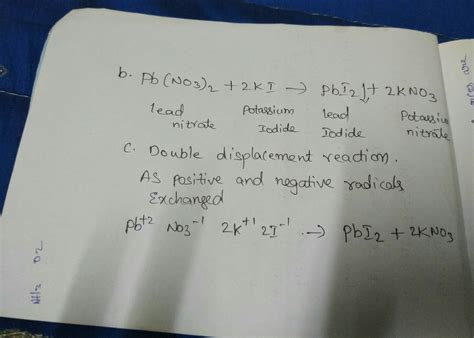 b. Pb(NO3)2 + 2KI → PbI2↓ + 2KNO3
lead Potassium lead Potassium
nitrate Iodide Iodide nitrate
C. Double displacement reaction.
As positive and negative radicals
Exchanged
Pb+2 NO3-1 2K+1 2I-1 → PbI2 + 2KNO3